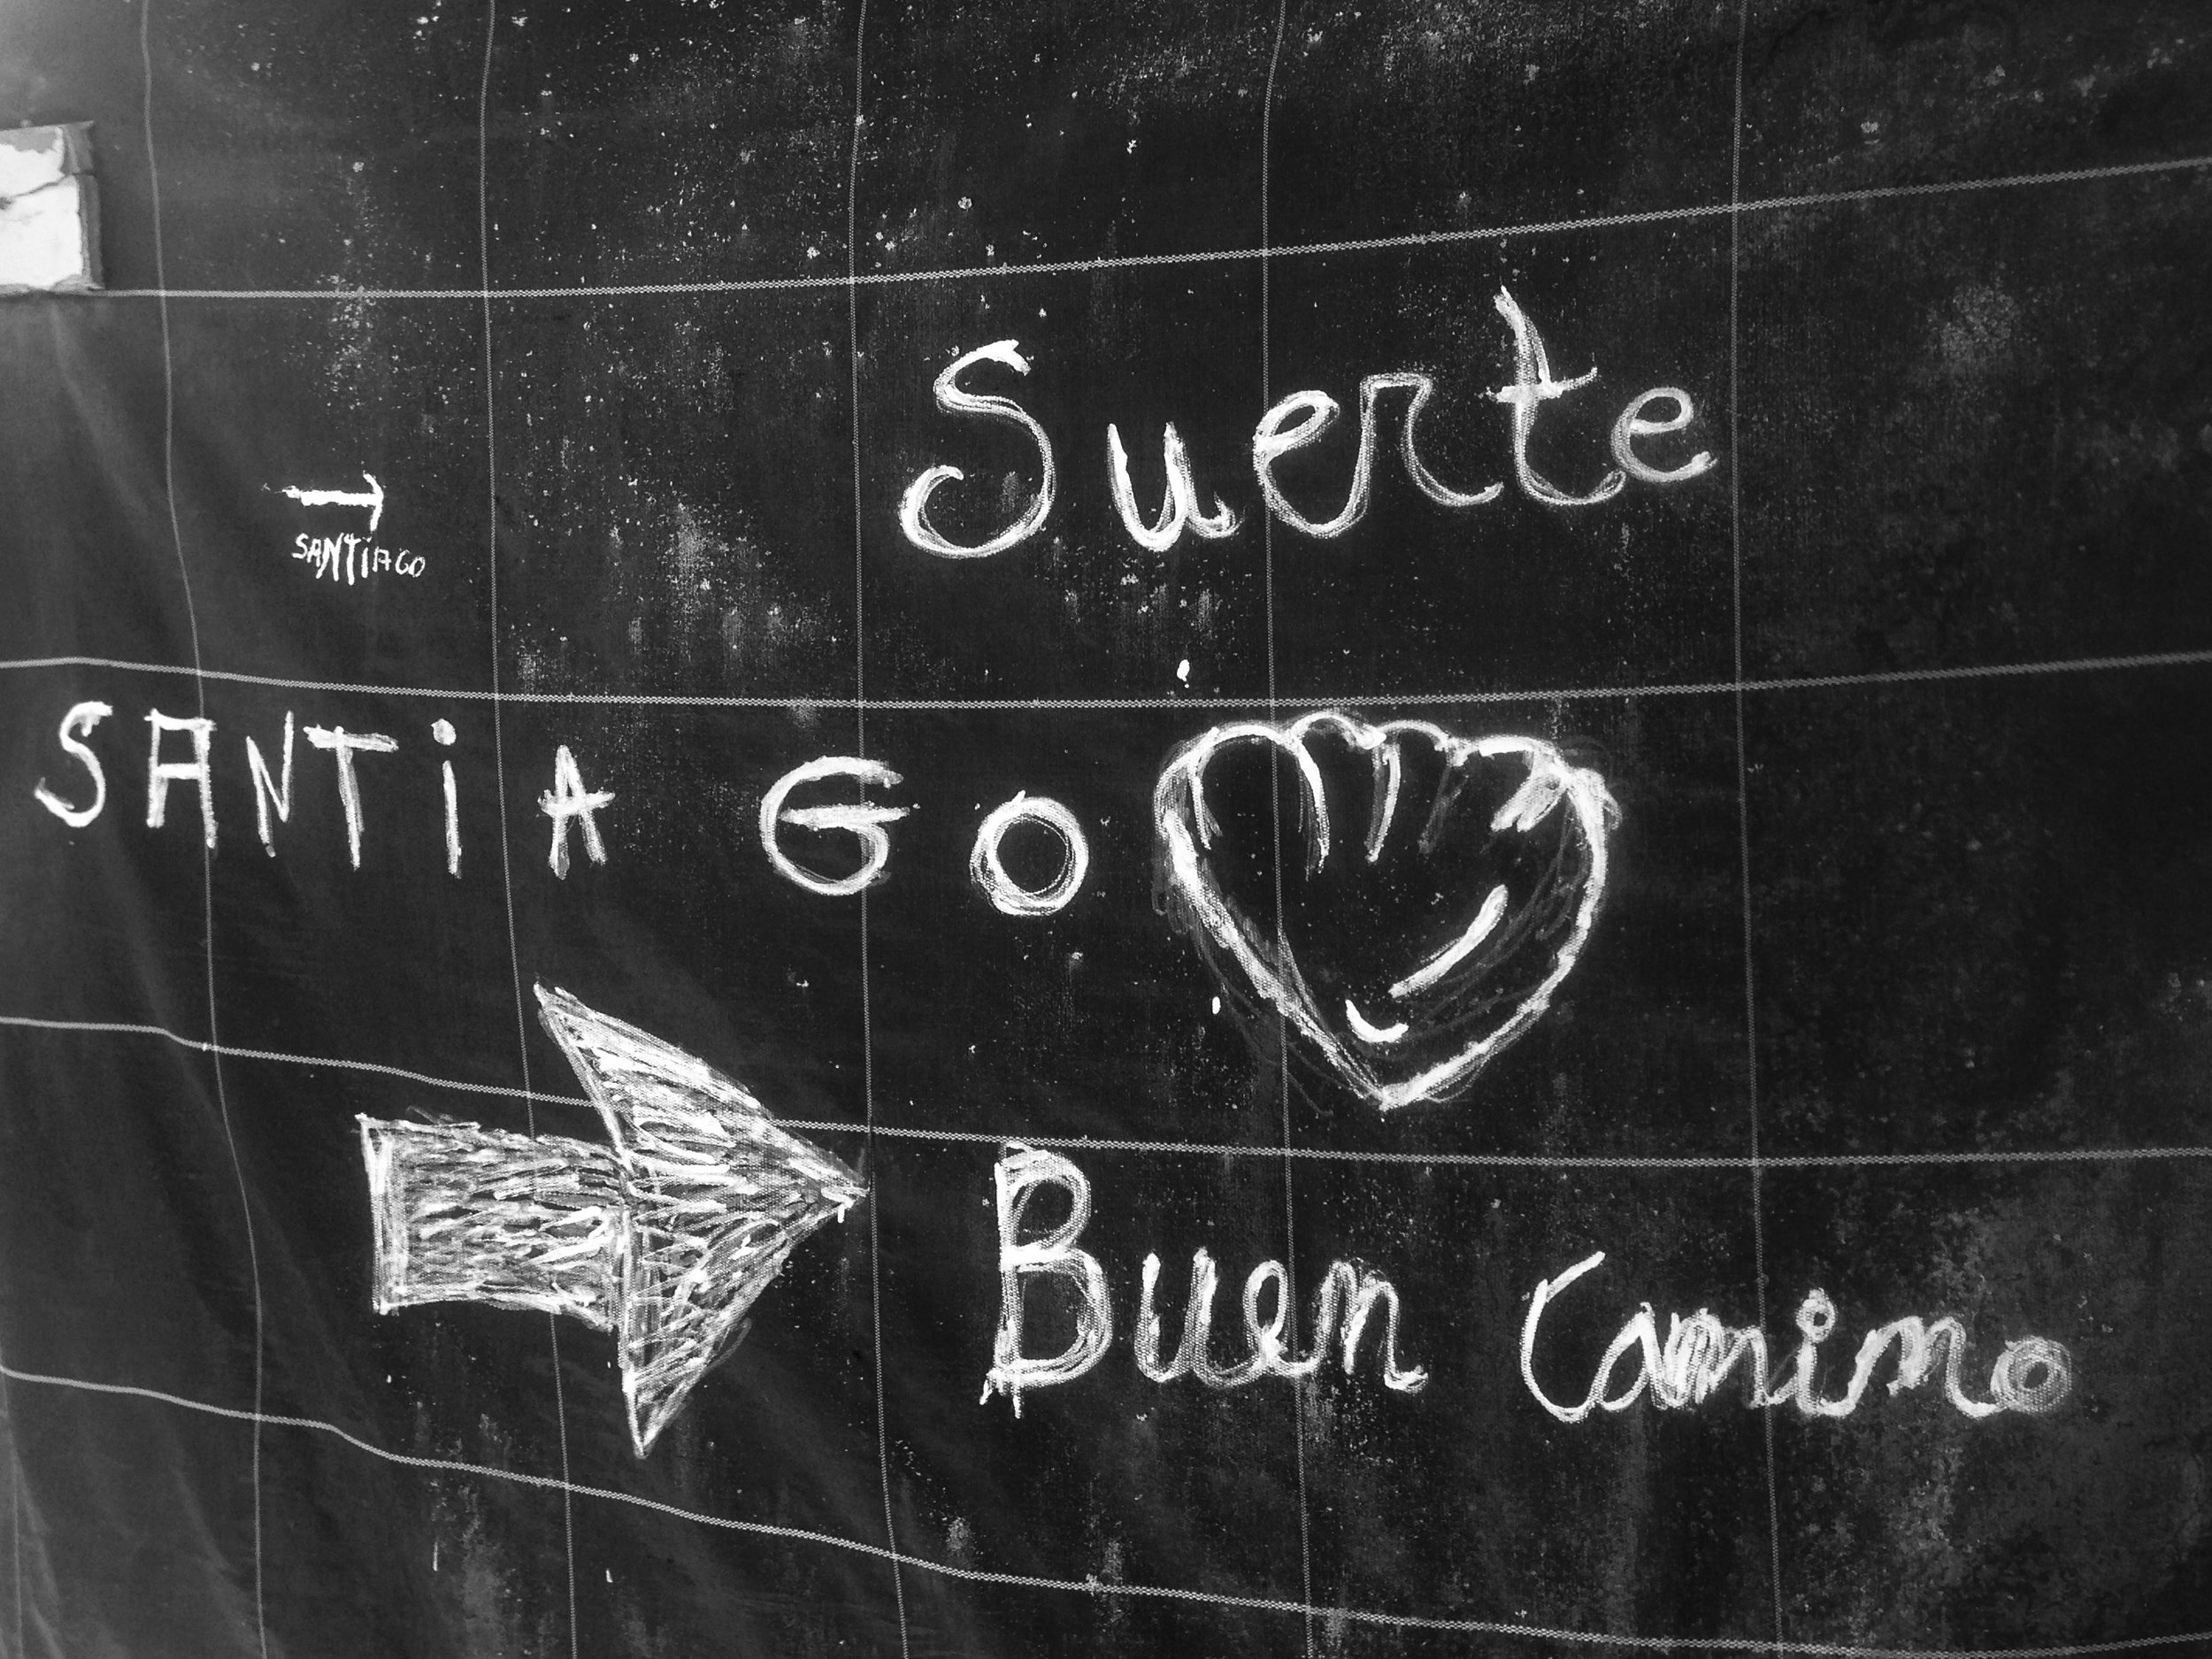 Suerte
SANTiAGO
SANTiAGO
Buen Camino